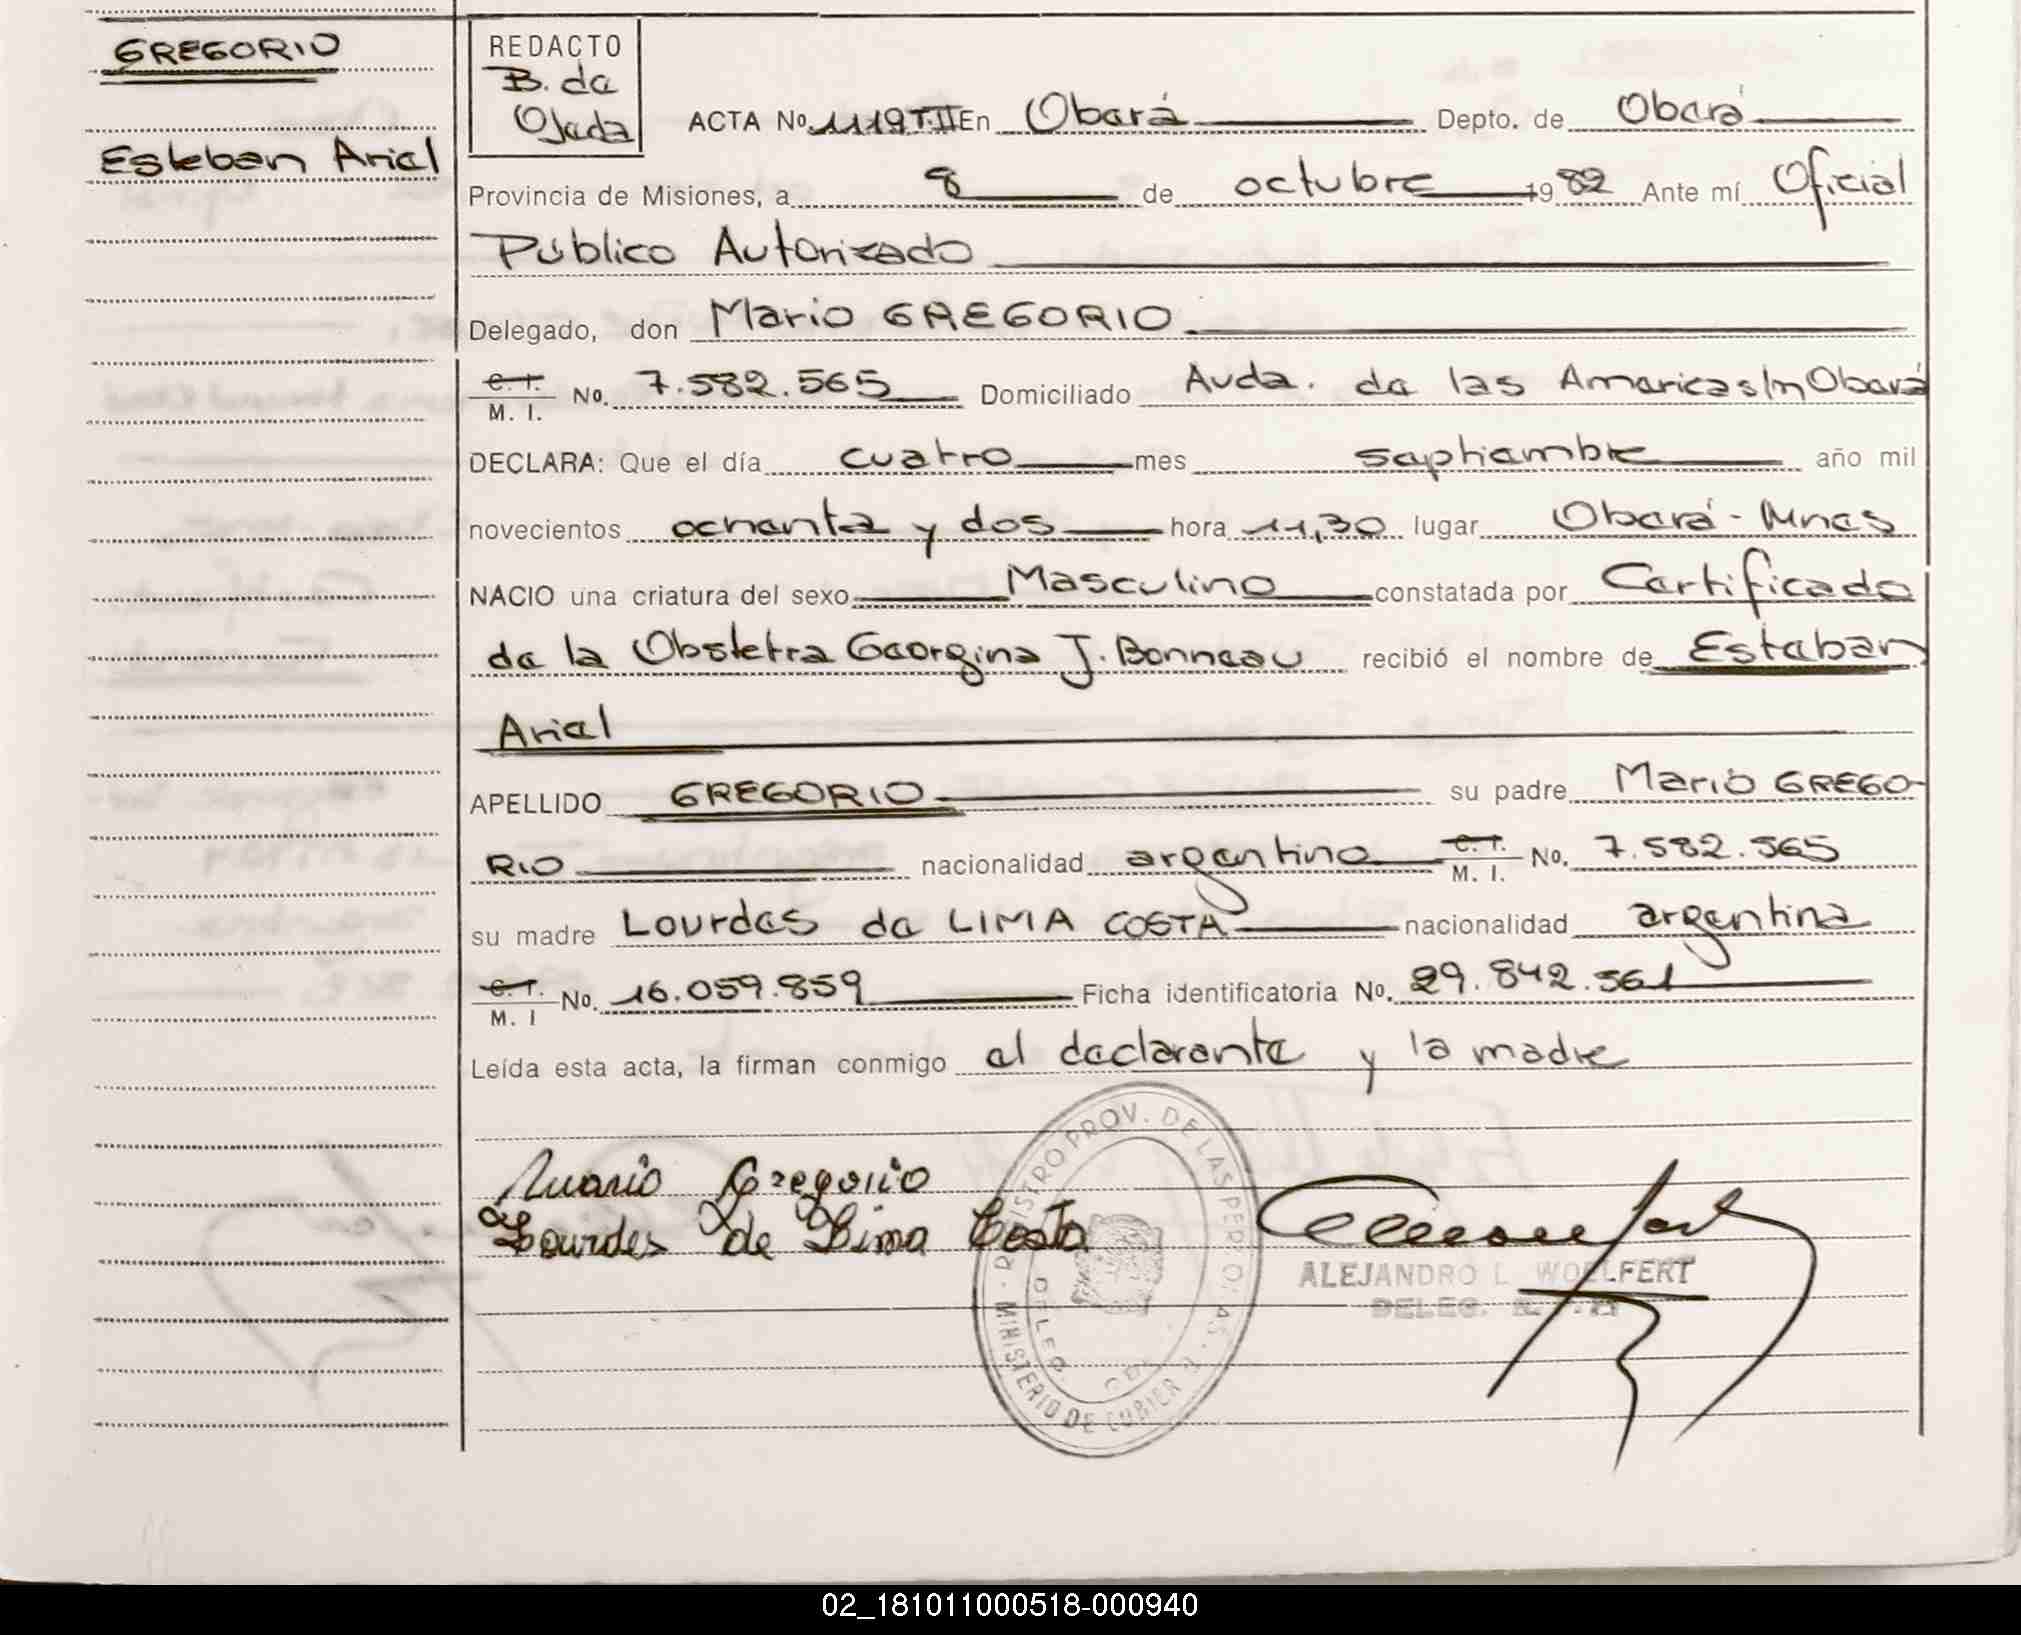 GREGORIO
Esteban Ariel
REDACTO
B. de
Ojeda
ACTA No. 1119 T.II En Oberá Depto. de Oberá
Provincia de Misiones, a 8 de octubre 1982 Ante mí Oficial
Público Autorizado
Delegado, don Mario GREGORIO
C. I.
M. I. No. 7.582.565 Domiciliado Avda. de las Americas s/n Oberá
DECLARA: Que el día cuatro mes septiembre año mil
novecientos ochenta y dos hora 11,30 lugar Oberá - Mnes
NACIO una criatura del sexo Masculino constatada por Certificado
de la Obstetra Georgina J. Bonneau recibió el nombre de Esteban
Ariel
APELLIDO GREGORIO su padre Mario GREGO-
RIO nacionalidad argentino C. I.
M. I. No. 7.582.565
su madre Lourdes de LIMA COSTA nacionalidad argentina
C. I.
M. I No. 16.059.859 Ficha identificatoria No. 29.842.561
Leída esta acta, la firman conmigo el declarante y la madre
Mario Gregorio
Lourdes de Lima Costa
REGISTRO PROV. DE LAS PER
MINISTERIO DE GOBIER
DELEG.
ALEJANDRO L. WOELFERT
DELEG.
02_181011000518-000940